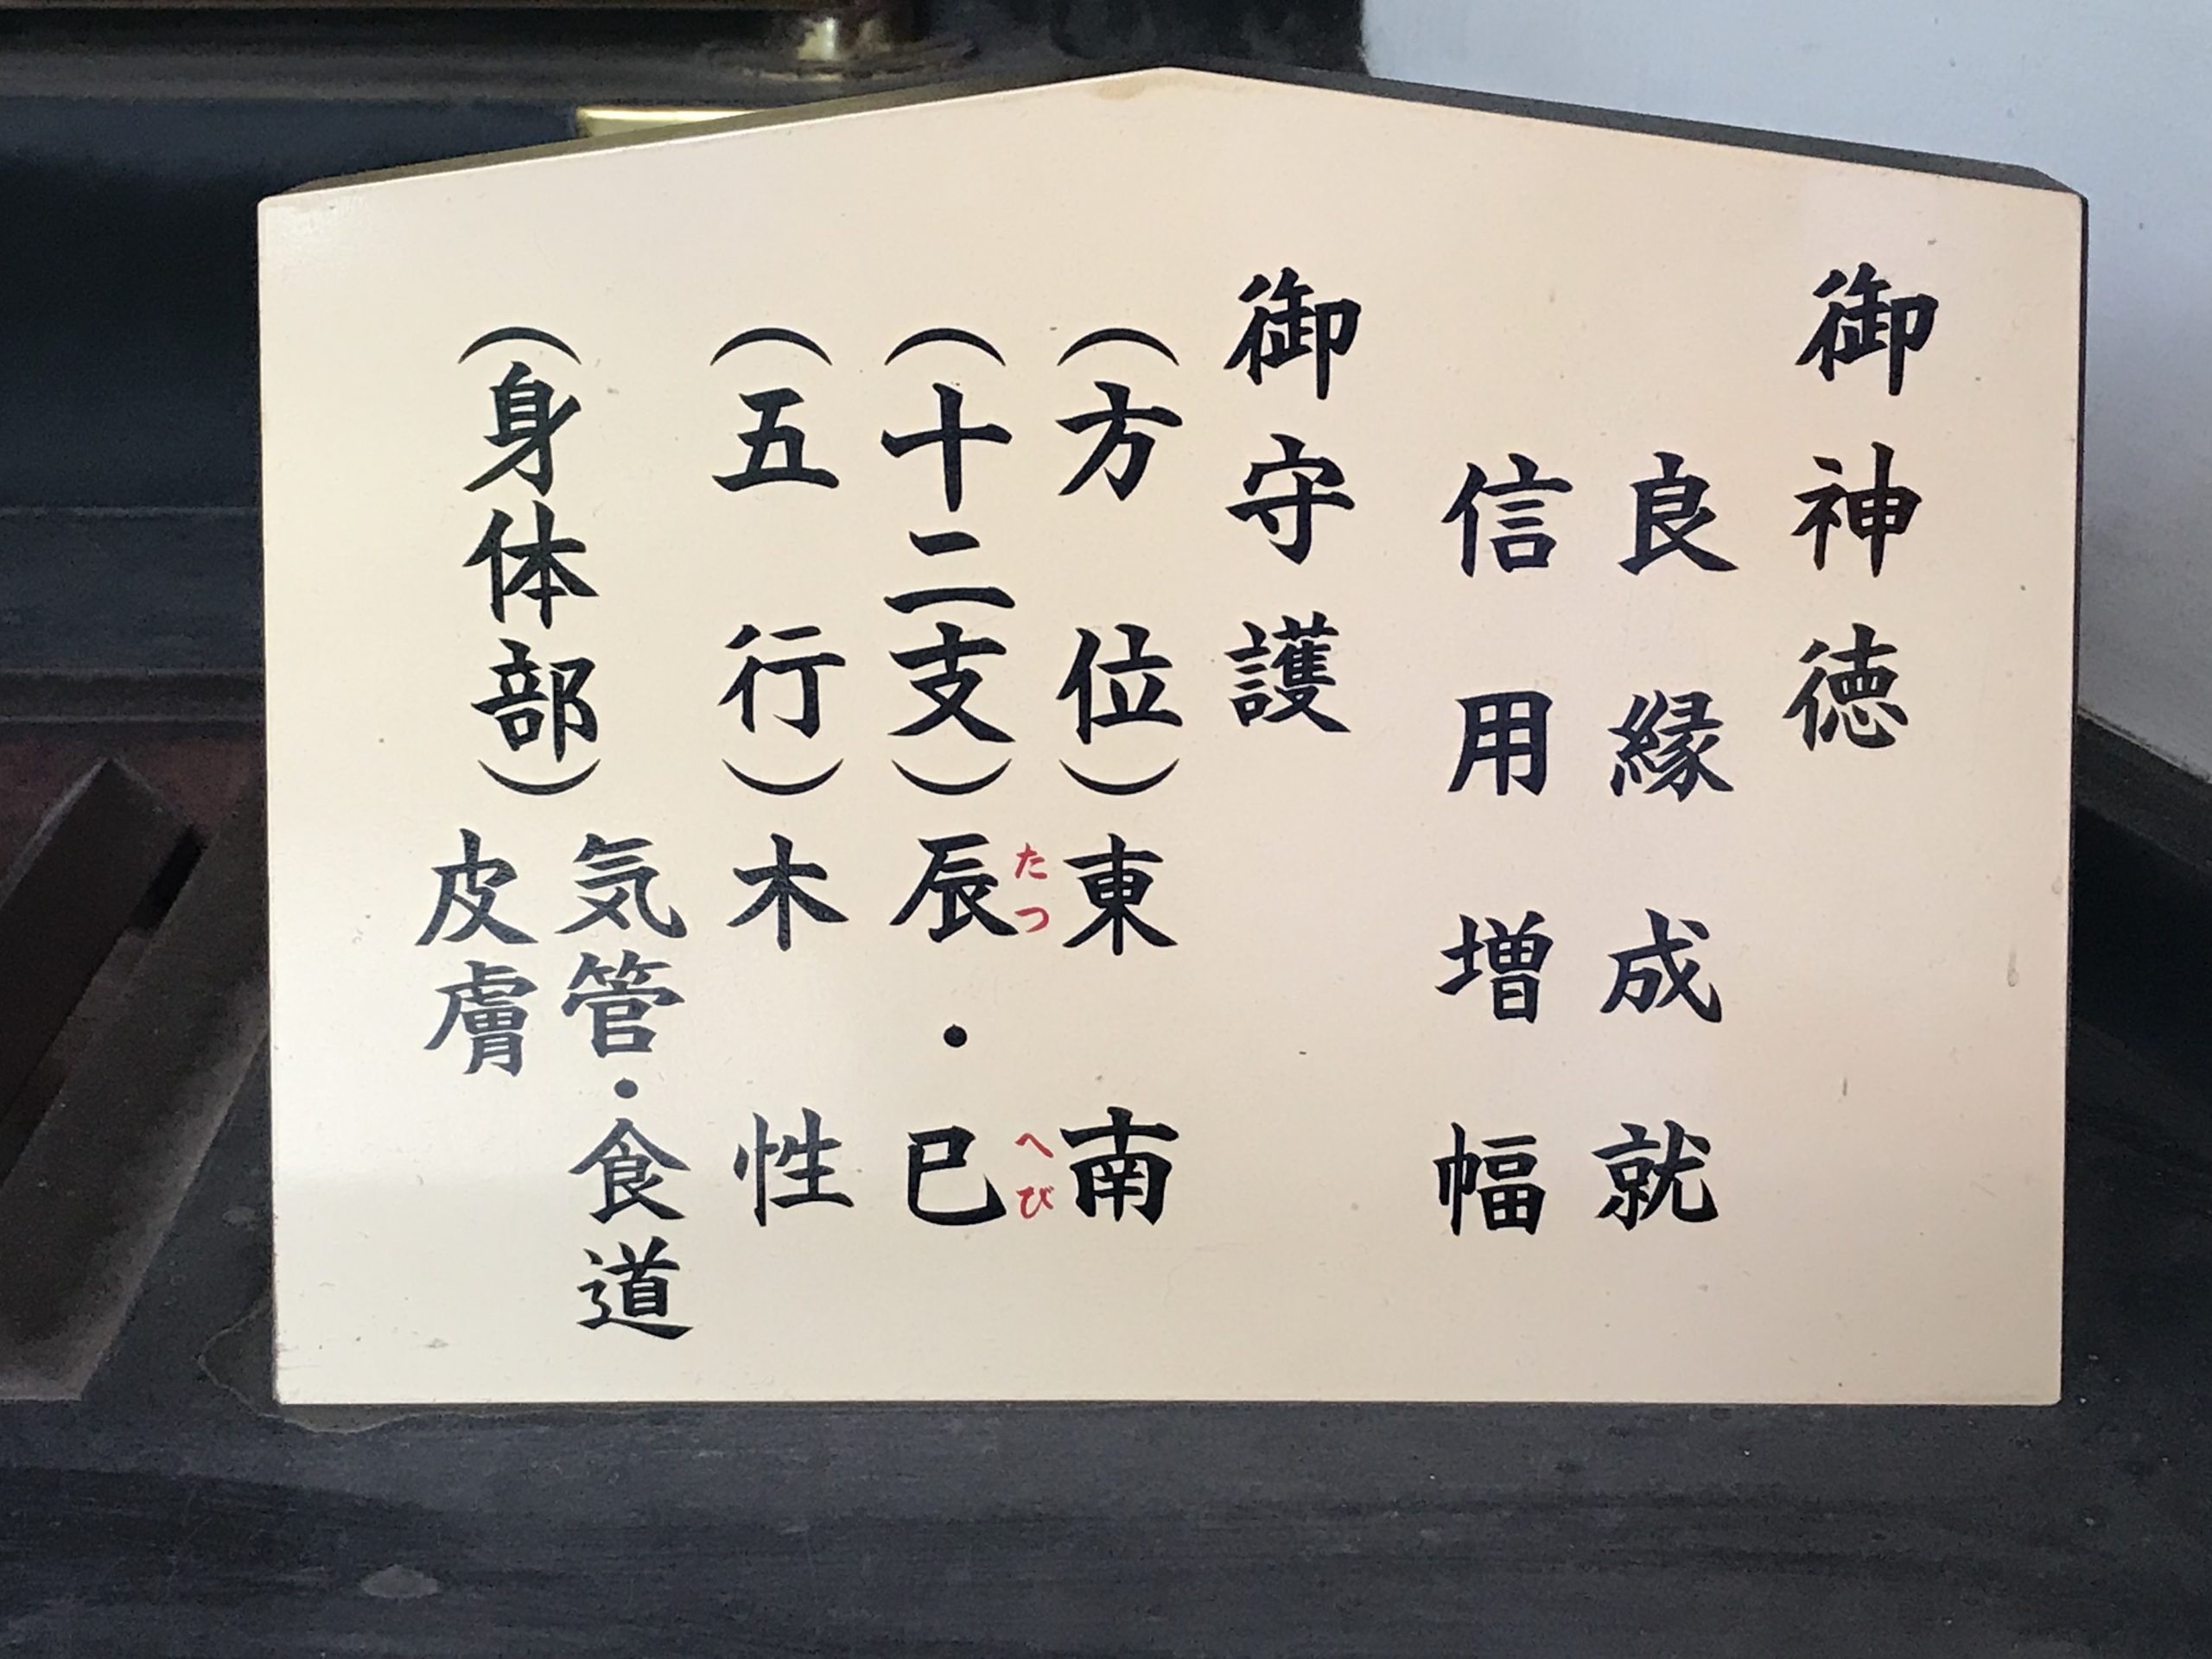 御神徳
良縁成就
信用増幅
御守護
(方位)東南
(十二支)辰・巳
たつ
へび
(五行)木性
(身体部)
気管・食道
皮膚